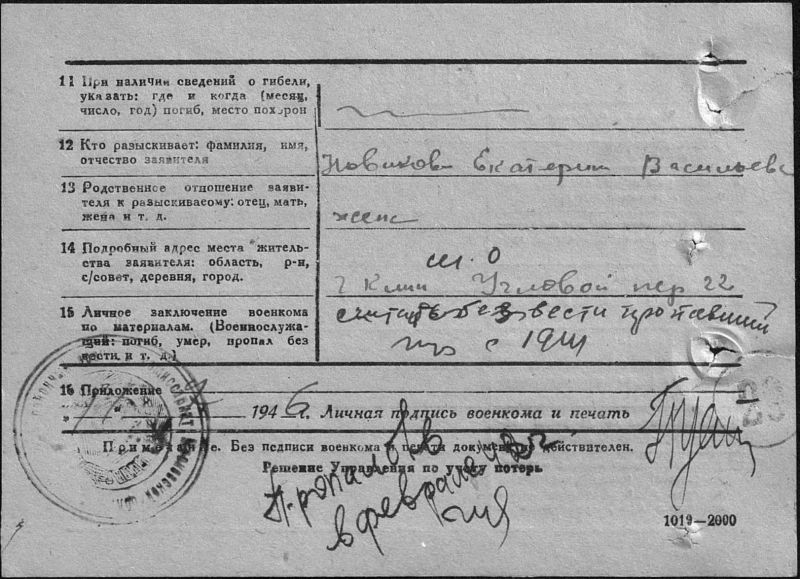 11 При наличии сведений о гибели,
указать: где и когда (месяц,
число, год) погиб, место похорон
12 Кто разыскивает: фамилия, имя,
отчество заявителя
Новикова Екатерин Васильевн
13 Родственное отношение заяви-
теля к разыскиваемому: отец, мать,
жена и т. д.
жена
14 Подробный адрес места житель-
ства заявителя: область, р-н,
с/совет, деревня, город.
м. о
г Клин Угловой пер 22
15 Личное заключение военкома
по материалам. (Военнослужа-
щий: погиб, умер, пропал без
вести и т. д.)
считать без вести пропавший
с
16 Приложение
194 6 г. Личная подпись военкома и печать
Примечание. Без подписи военкома и печати документ недействителен.
Решение Управления по учету потерь
в феврале
1019—2000